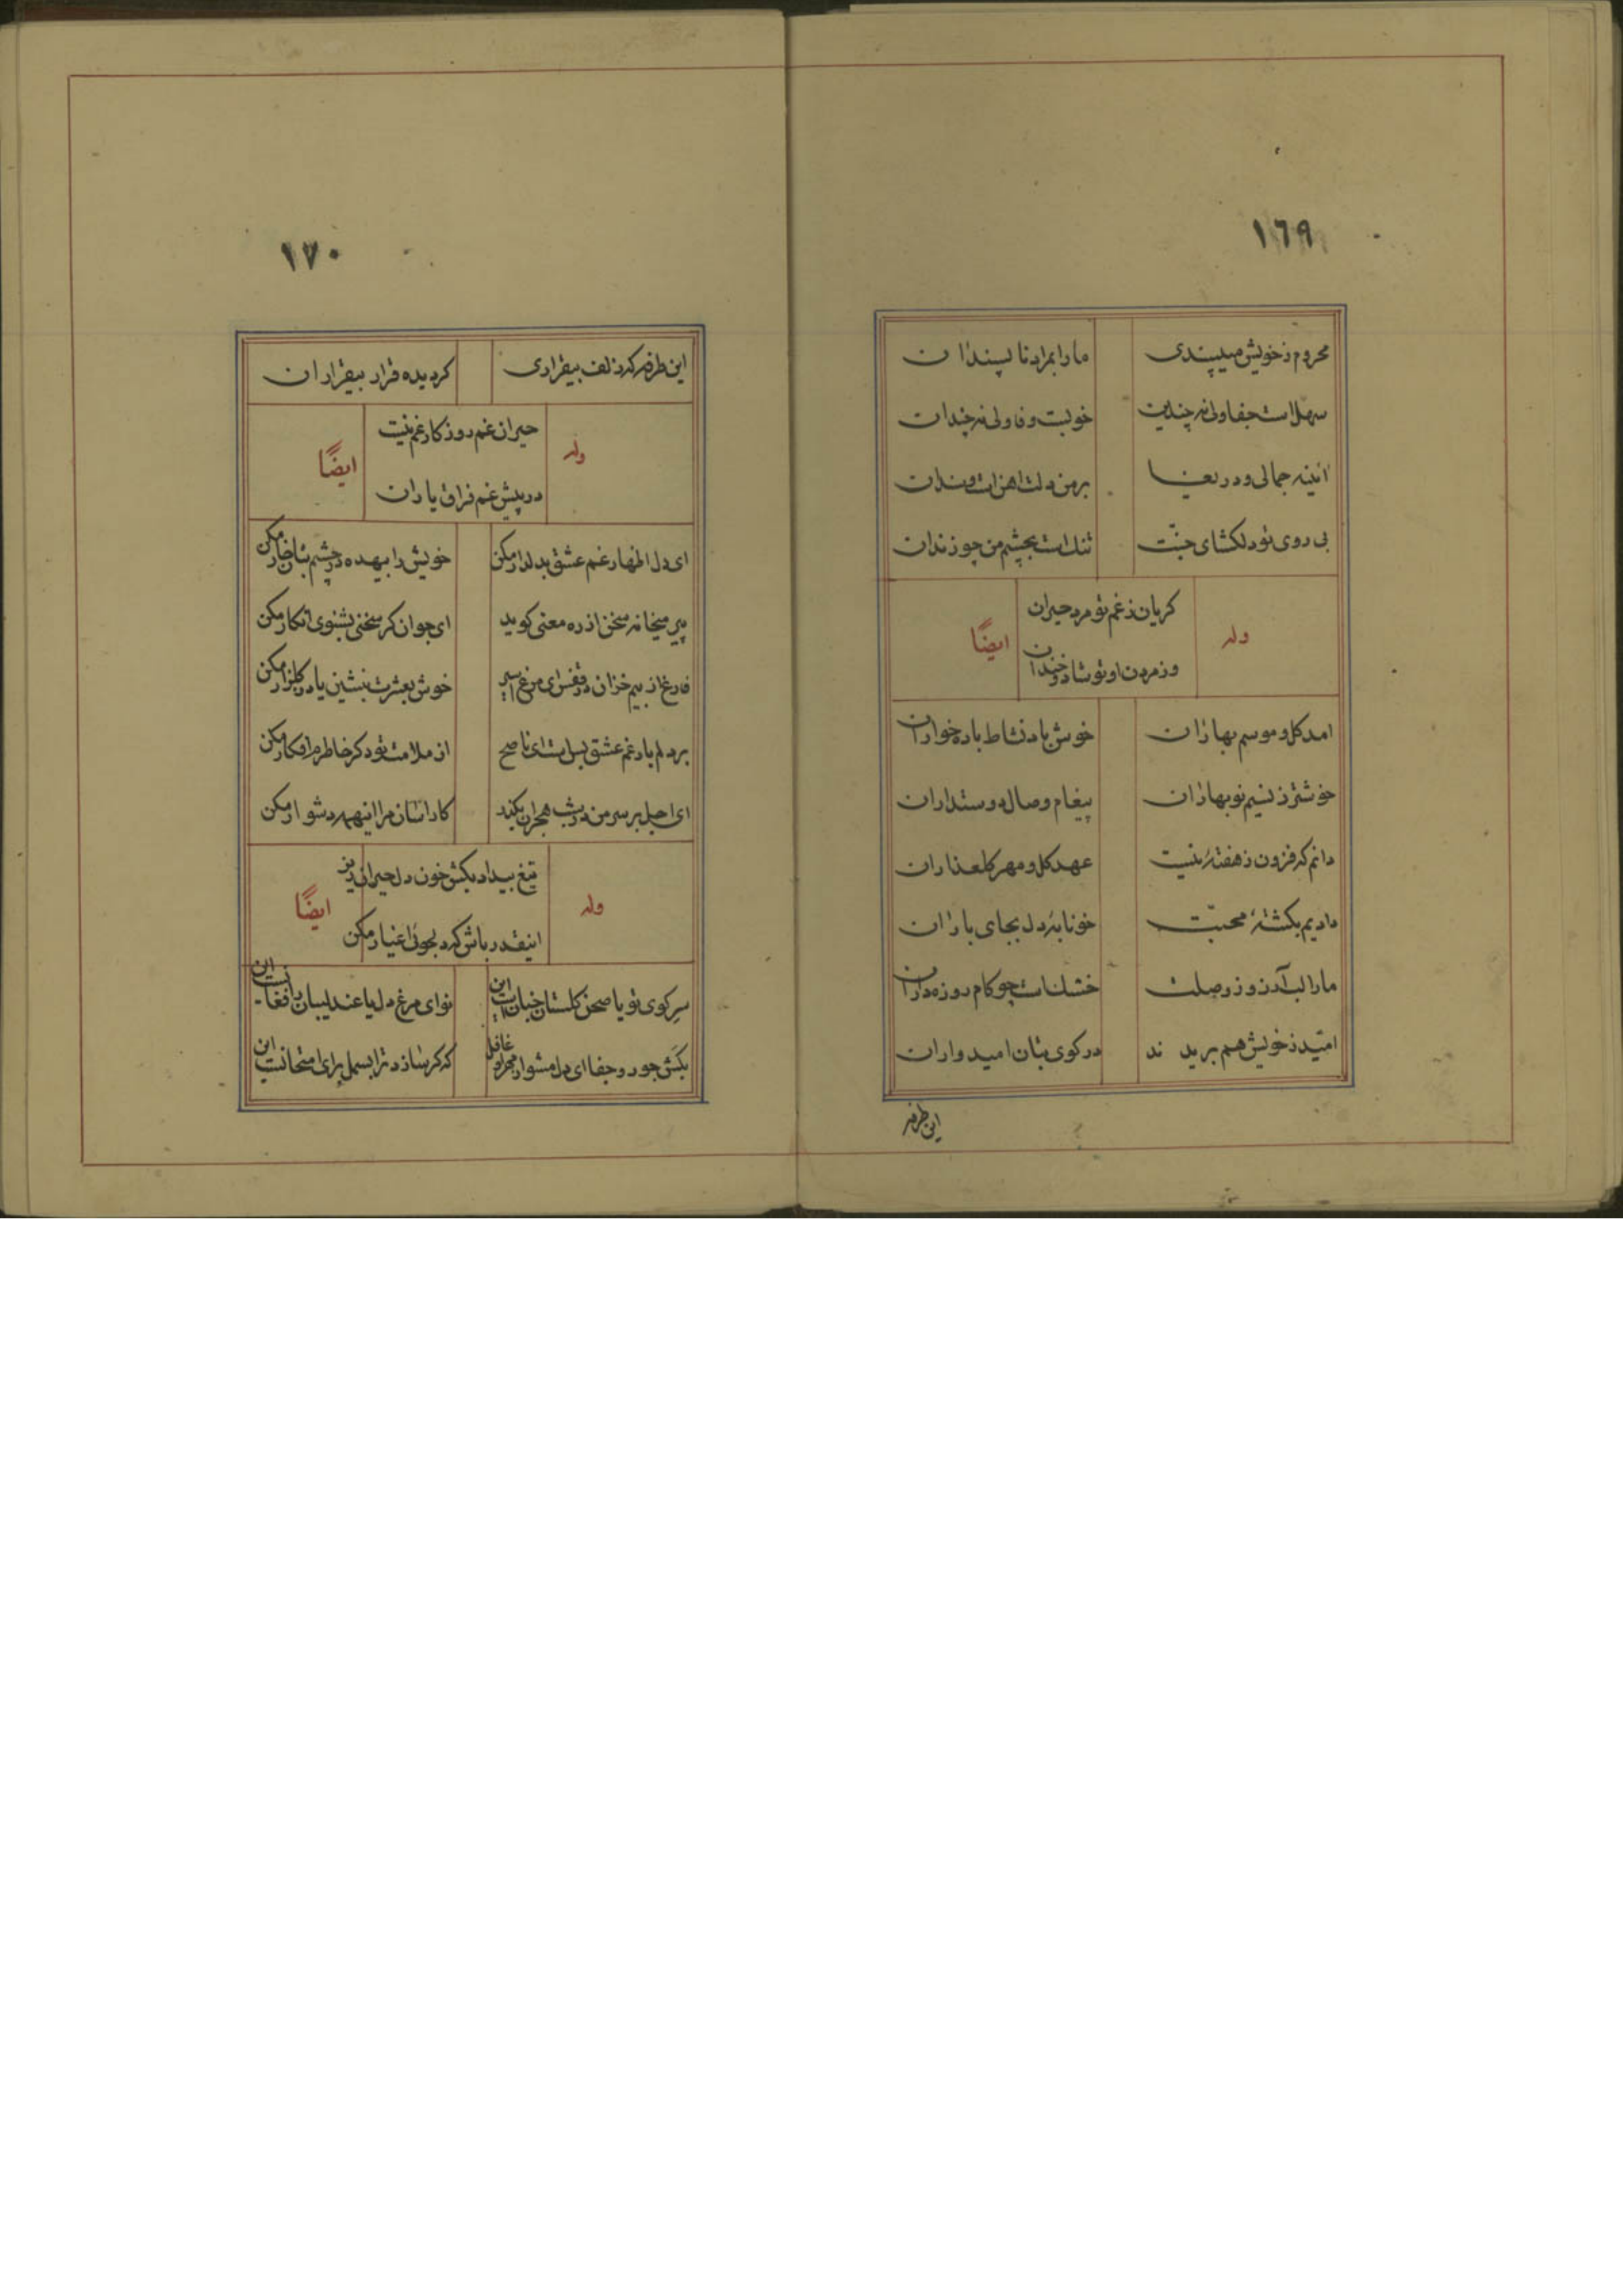 ١٦٩
محروم ز خویش میپسندی
ما را بمراد ناپسندان
سهل است جفا ولی نه چندین
خوبست وفا ولی نه چندان
آئینه جمالی و دریغا
بر من دلت اهن است و سندان
بی روی تو دلکشای جنّت
تنك است بچشم من چو زندان
وله
کریان ز غم تو مرد حیران
وز مردن او تو شاد و خندان
ایضًا
امد کل و موسم بهاران
خوش باد نشاط باده خواران
خوشتر ز نسیم نوبهاران
پیغام وصال دوستداران
دانم که فزون ز هفتهٔ نیست
عهد کل و مهر کلعذاران
دادیم بکشتهٔ محبّت
خونابهٔ دل بجای باران
ما را لب آرزو ز وصلت
خشك است چو کام روزه داران
امّید ز خویش هم بریدند
در کوی بتان امیدواران
این طرفه
١٧٠
این طرفه که زلف بیقراری
کردیده قرار بیقراران
وله
حیران غم روزکار غم نیست
در پیش غم فراق یاران
ایضًا
ای دل اظهار غم عشق بدلدار مکن
خویش را بیهده در چشم بتان خار مکن
پیر میخانه سخن از ره معنی کوید
ای جوان کر سخنی بشنوی انکار مکن
فارغ از بیم خزان در قفس ای مرغ اسیر
خوش بعشرت بنشین یاد ز کلزار مکن
بر دلم بار غم عشق بس است ای ناصح
از ملامت تو دکر خاطرم افکار مکن
ای اجل بر سر من در شب هجران بکذر
کار اسان مرا اینهمه دشوار مکن
وله
تیغ بیداد بکش خون دل حیران ریز
اینقدر باش که دلجوئی اغیار مکن
ایضًا
سر کوی تو یا صحن کلستان جنان است این
نوای مرغ دل یا عندلیبان را فغانست این
بکش جور و جفا ای دل مشو از مهر او غافل
که کر سازد ترا بسمل برای امتحانست این